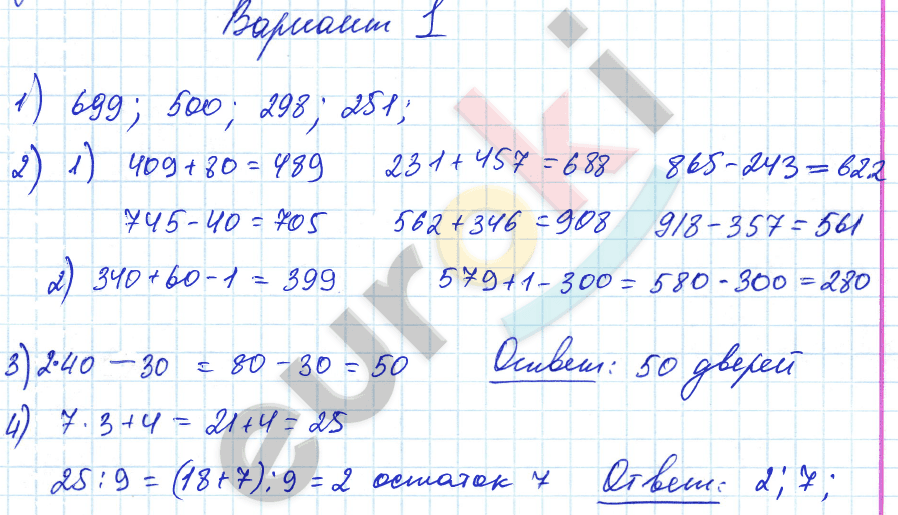 Вариант 1
1) 699; 500; 298; 251;
2) 1) 409+80=489 231+457=688 865-243=622
745-40=705 562+346=908 918-357=561
2) 340+60-1=399 579+1-300=580-300=280
3) 2·40-30=80-30=50 Ответ: 50 дверей
4) 7·3+4=21+4=25
25:9=(18+7):9=2 остаток 7 Ответ: 2; 7;
euroki